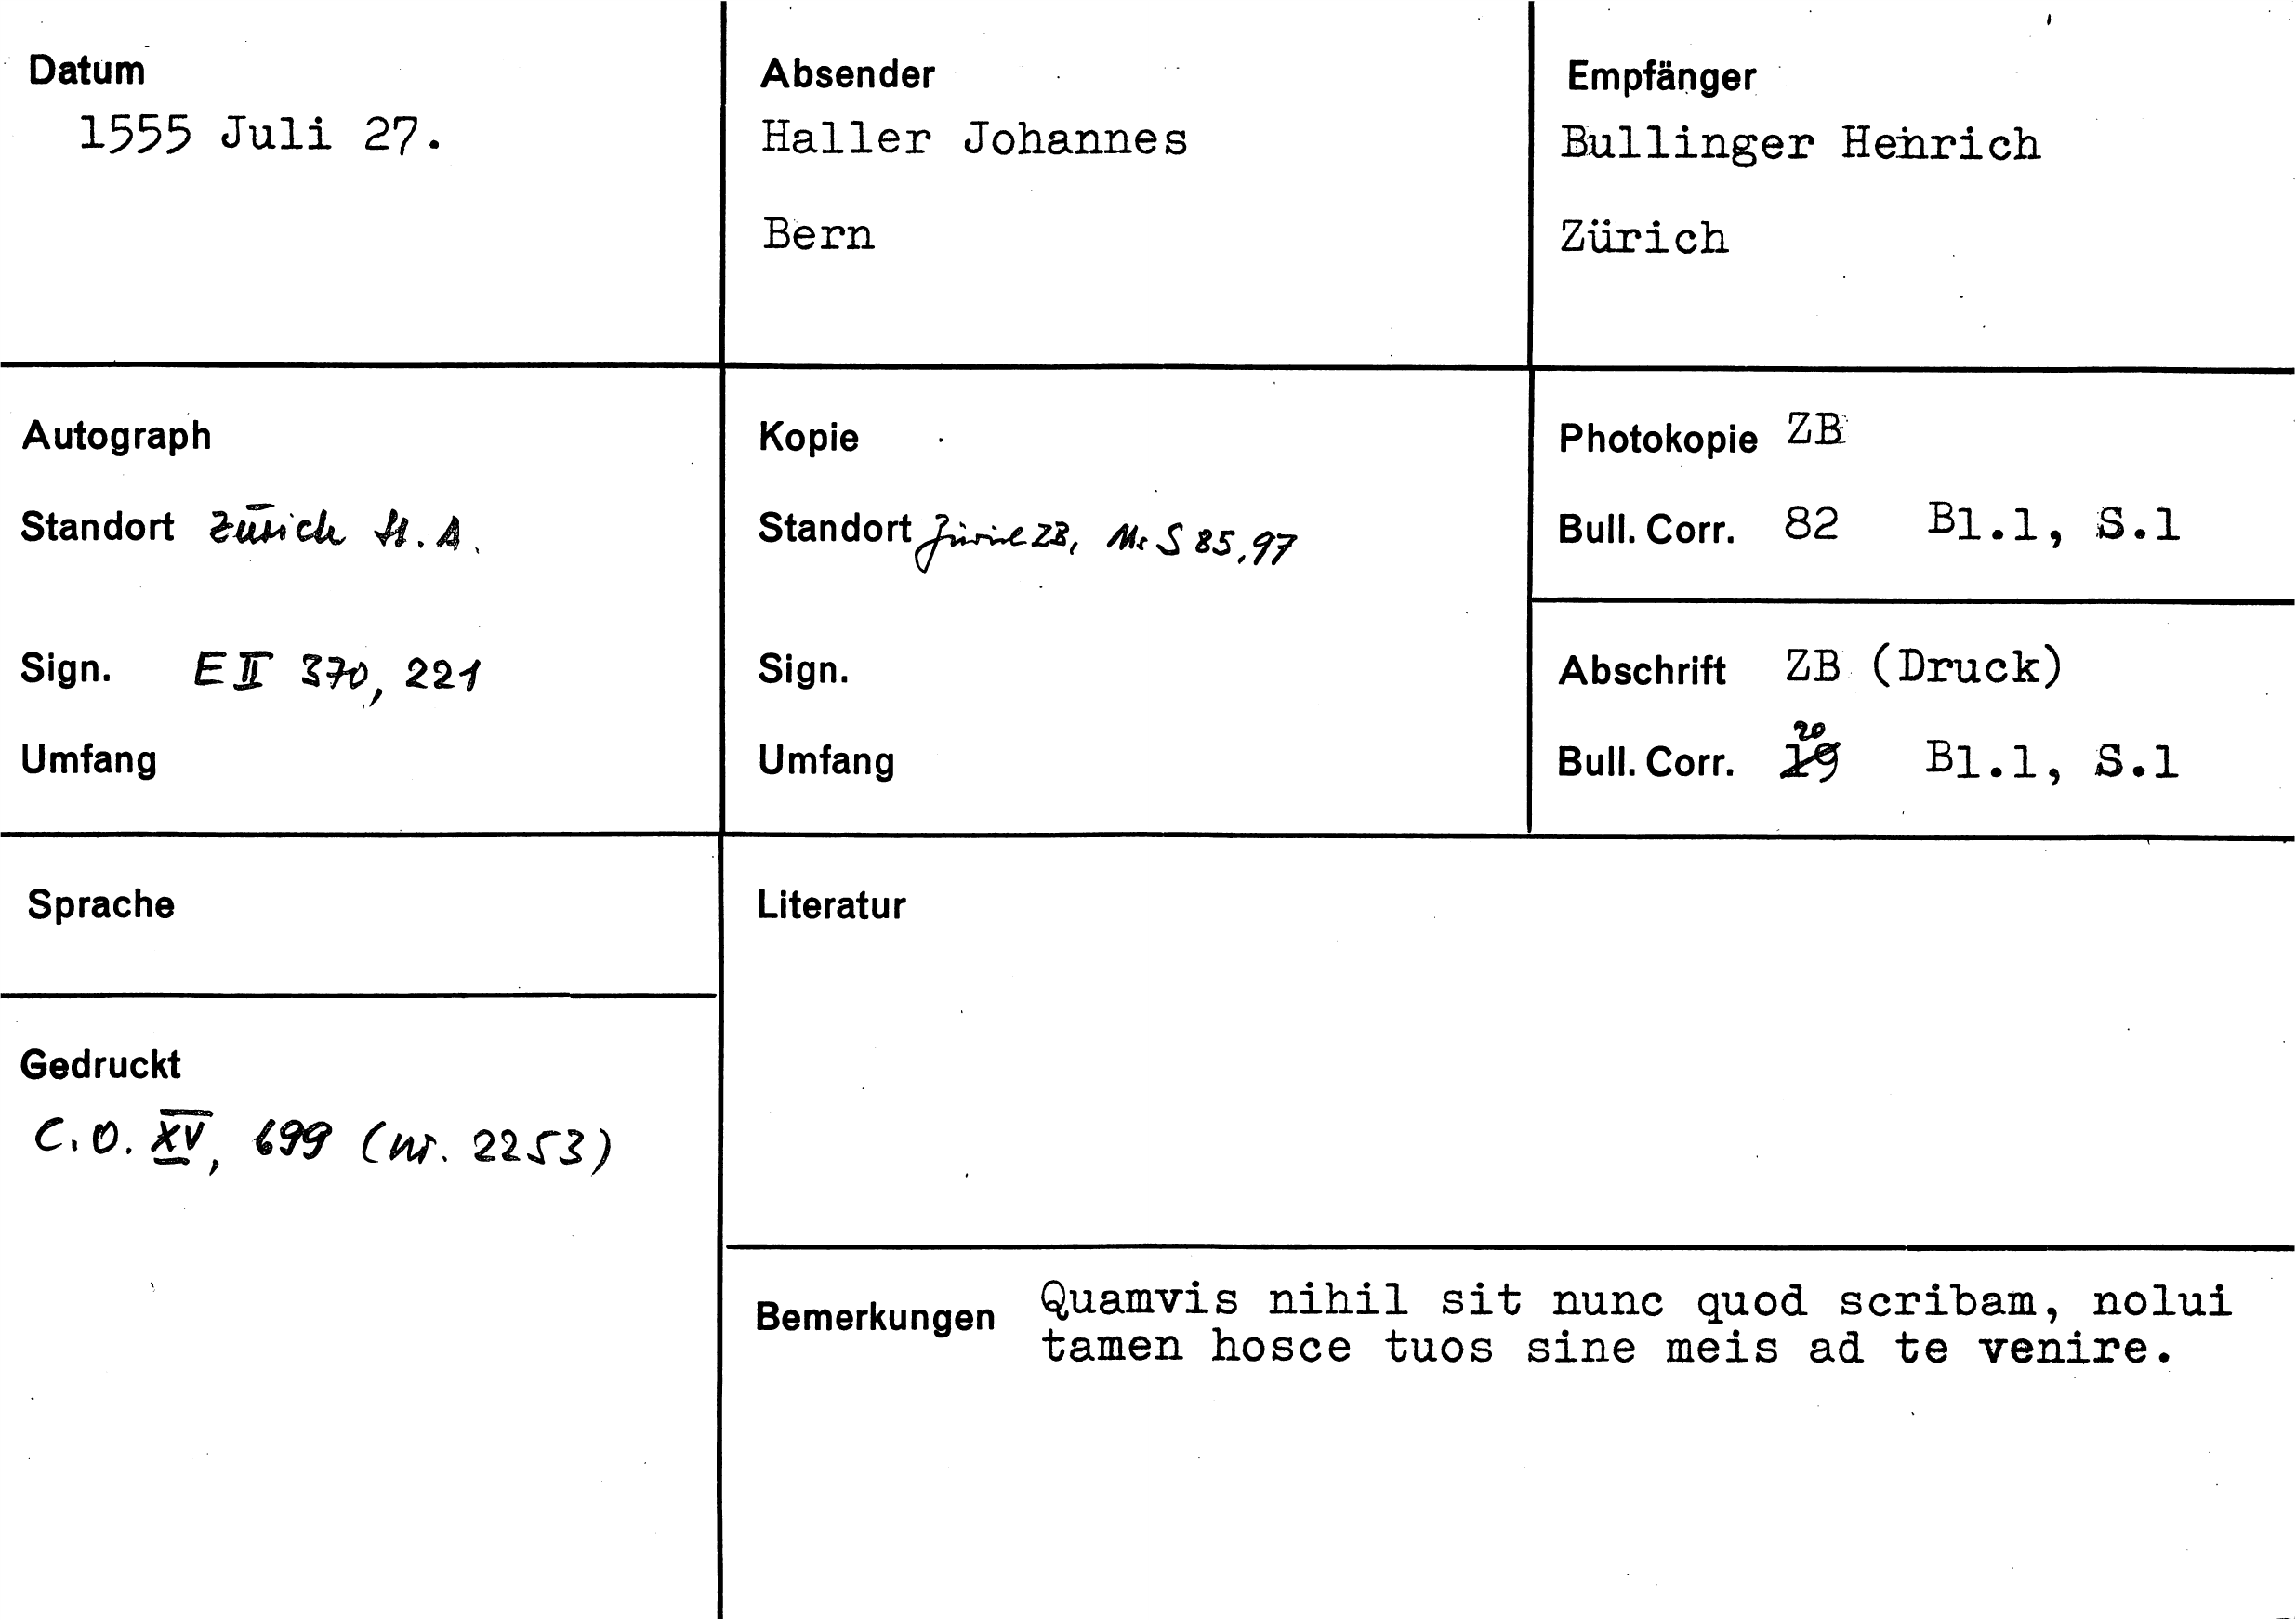 Datum
1555 Juli 27.
Absender
Haller Johannes
Bern
Empfänger
Bullinger Heinrich
Zürich
Autograph
Standort Zürich St. A.
Sign. E II 370, 221
Umfang
Kopie
Standort Zürich ZB, Ms S 85, 97
Sign.
Umfang
Photokopie ZB
Bull. Corr. 82 Bl.1, S.1
Abschrift ZB (Druck)
20
Bull. Corr. 19 Bl.1, S.1
Sprache
Gedruckt
C.O. XV, 699 (nr. 2253)
Literatur
Bemerkungen Quamvis nihil sit nunc quod scribam, nolui
tamen hosce tuos sine meis ad te venire.